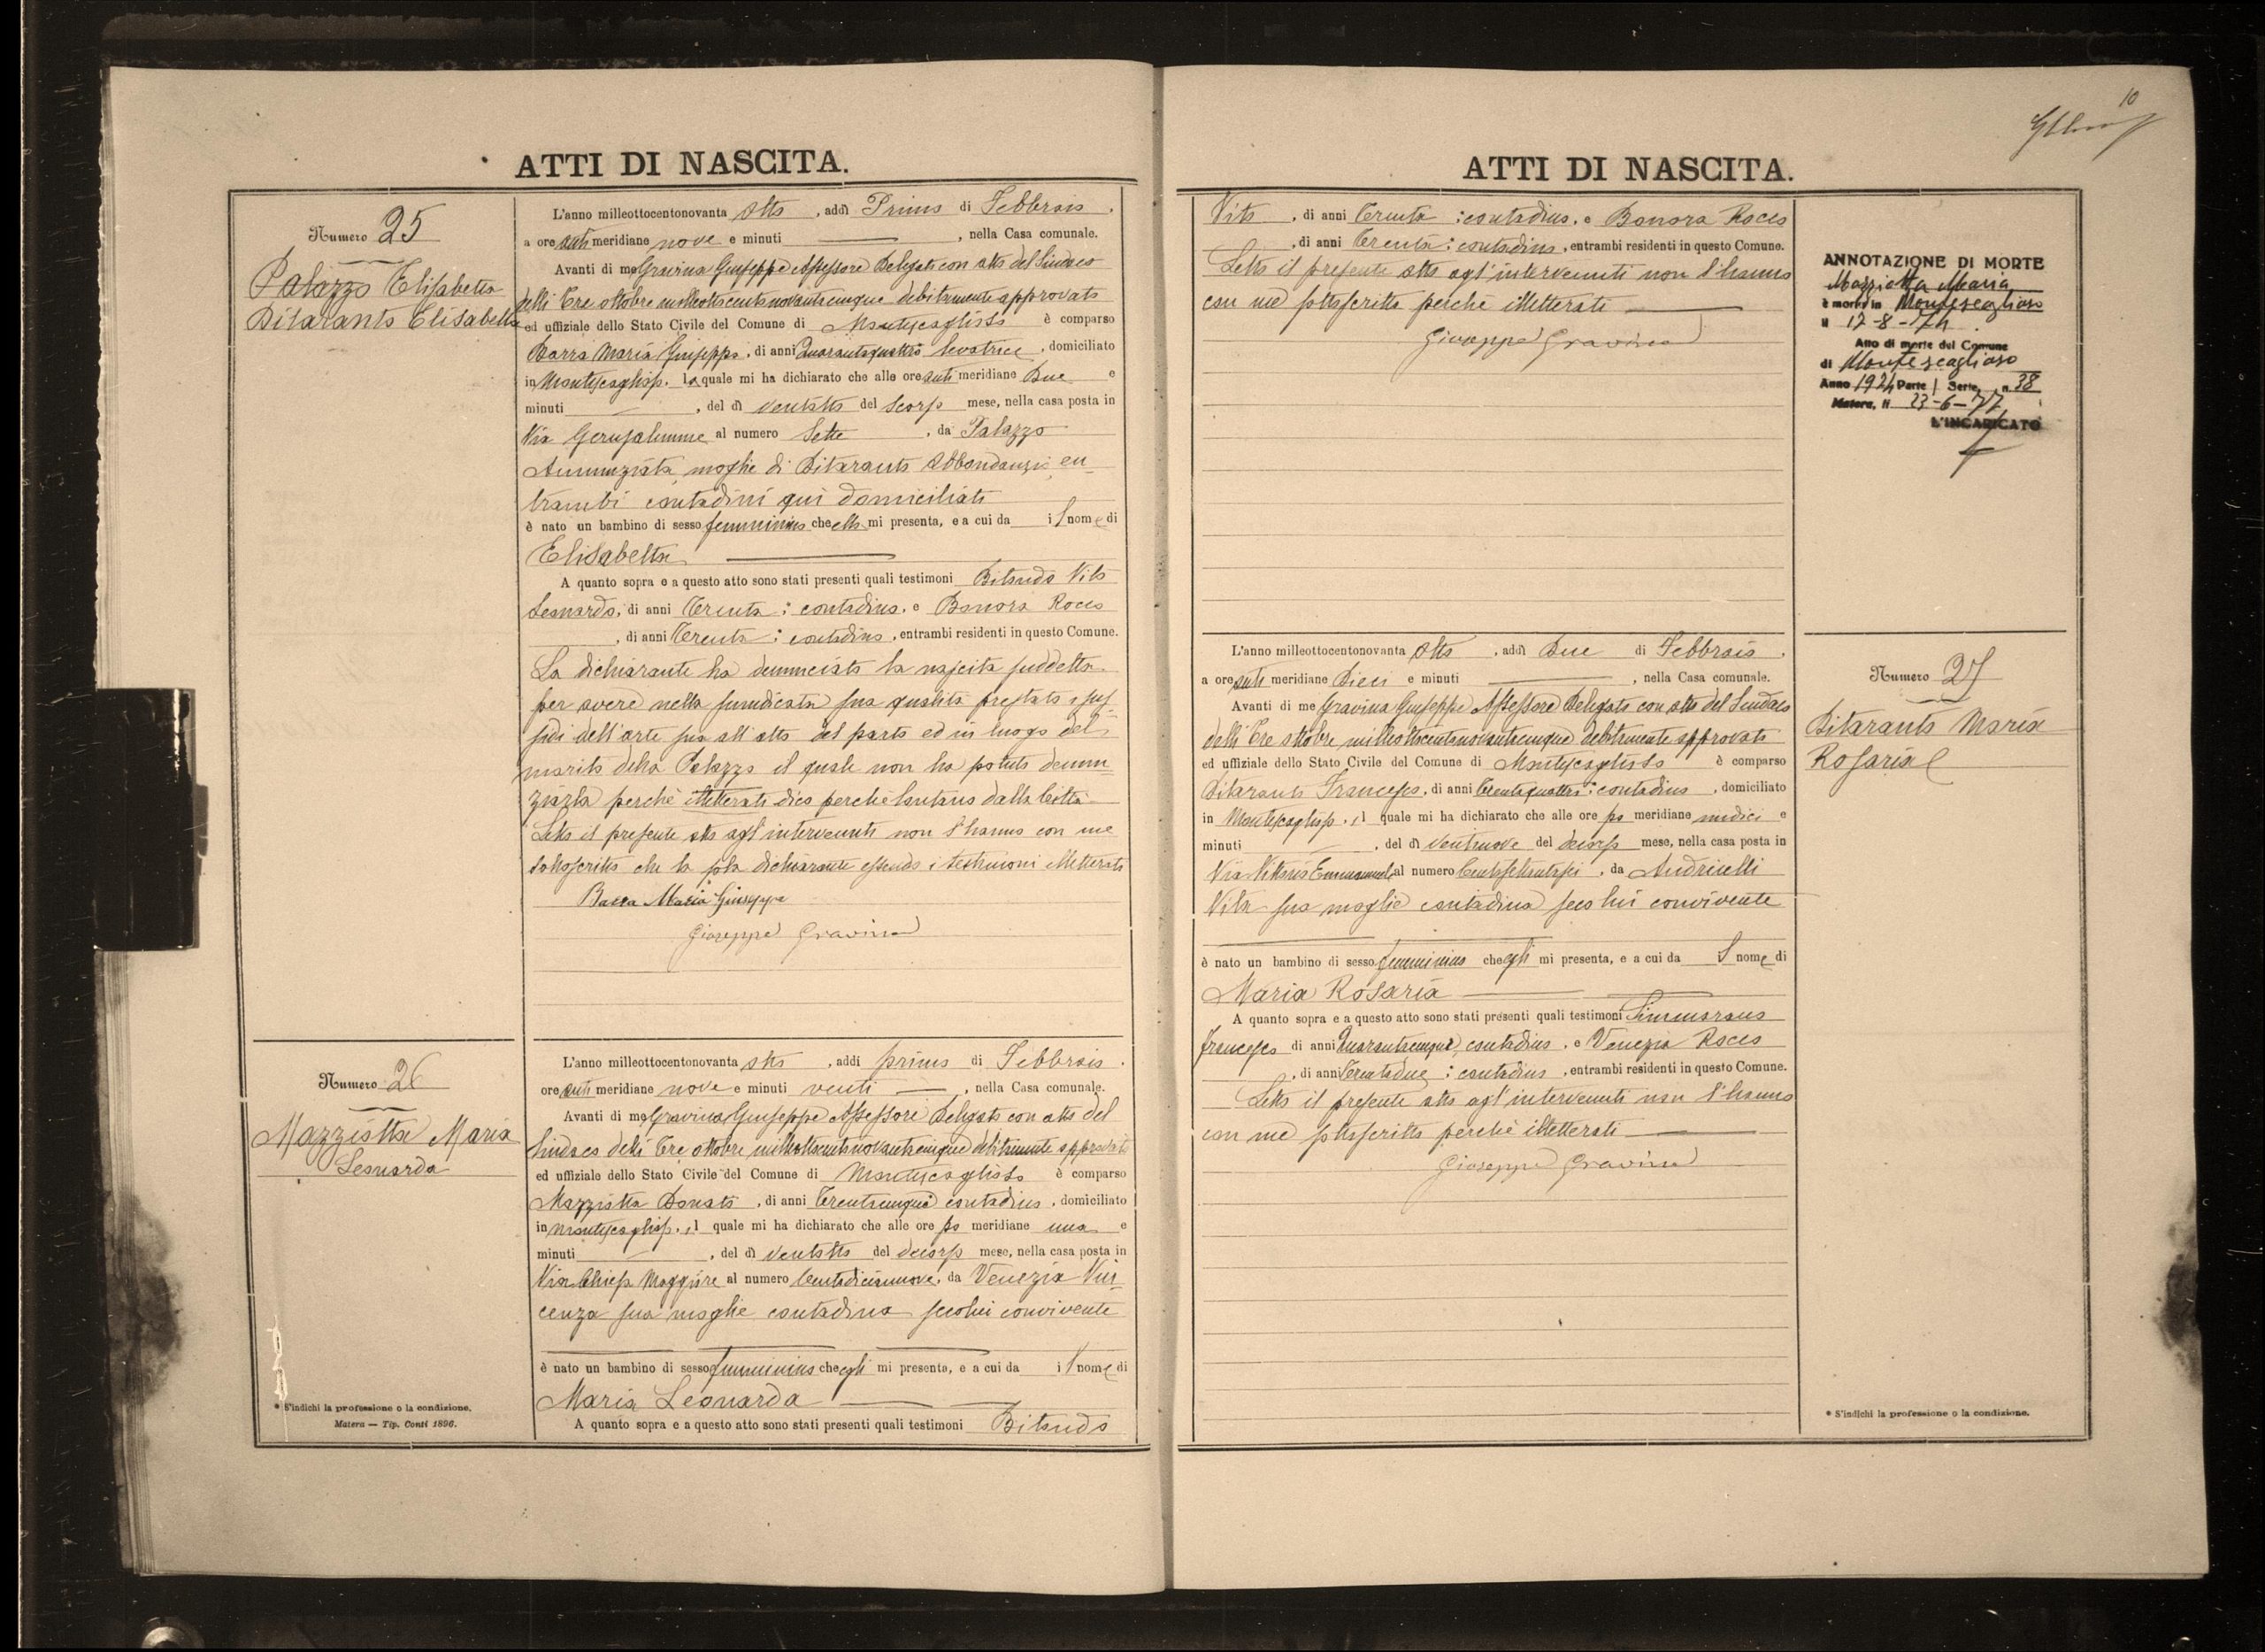 ATTI DI NASCITA.
Numero 25
Palazzo Elisabetta
Ditaranto Elisabetta
L'anno milleottocentonovanta otto, addì Primo di Febbraio,
a ore anti meridiane nove e minuti ———, nella Casa comunale.
Avanti di me Gravina Giuseppe Assessore Delegato con atto del Sindaco
delli Tre ottobre milleottocentonovantacinque debitamente approvato
ed uffiziale dello Stato Civile del Comune di Montescaglioso è comparso
Barra Maria Giuseppa, di anni Quarantaquattro levatrice, domiciliato
in Montescaglioso, la quale mi ha dichiarato che alle ore anti meridiane Due e
minuti —, del dì ventotto del scorso mese, nella casa posta in
Via Gerusalemme al numero Sette, da Palazzo
Annunziata moglie di Ditaranto Abbondanzio, en-
trambi contadini qui domiciliati
è nato un bambino di sesso femminino che ella mi presenta, e a cui da il nome di
Elisabetta ———
A quanto sopra e a questo atto sono stati presenti quali testimoni Ditaranto Vito
Leonardo, di anni Trenta: contadino, e Bonora Rocco
, di anni Trenta: contadino, entrambi residenti in questo Comune.
La dichiarante ha denunciato la nascita suddetta
per avere nella sunidicata sua qualità prestato i sus-
sidi dell'arte sua all'atto del parto ed in luogo del
marito della Palazzo il quale non ha potuto denun-
ziarla perchè illetterato dico perchè lontano dalla Città
Letto il presente atto agl'intervenuti non l'hanno con me
sottoscritto che la sola dichiarante essendo i testimoni illetterati
Barra Maria Giuseppa
Giuseppe Gravina
Numero 26
Mazziotta Maria
Leonarda
L'anno milleottocentonovanta otto, addì primo di Febbraio,
ore anti meridiane nove e minuti venti —, nella Casa comunale.
Avanti di me Gravina Giuseppe Assessore Delegato con atto del
Sindaco delli Tre ottobre milleottocentonovantacinque debitamente approvato
ed uffiziale dello Stato Civile del Comune di Montescaglioso è comparso
Mazziotta Donato, di anni Trentacinque contadino, domiciliato
in Montescaglioso, il quale mi ha dichiarato che alle ore po meridiane una e
minuti —, del dì ventotto del decorso mese, nella casa posta in
Via Chiesa Maggiore al numero Centodiciannove, da Venezia Vin-
cenza sua moglie contadina secolui convivente
è nato un bambino di sesso femminino che egli mi presenta, e a cui da il nome di
Maria Leonarda ———
A quanto sopra e a questo atto sono stati presenti quali testimoni
* S'indichi la professione o la condizione.
Matera — Tip. Conti 1896.
10
ATTI DI NASCITA.
Vito, di anni Trenta: contadino, e Bonora Rocco
, di anni Trenta: contadino, entrambi residenti in questo Comune.
Letto il presente atto agl'intervenuti non l'hanno
con me sottoscritto perchè illetterati ———
Giuseppe Gravina
ANNOTAZIONE DI MORTE
Mazziotta Maria
è morta in Montescaglioso
il 17-8-74
Atto di morte del Comune
di Montescaglioso
Anno 1974 Parte I Serie n. 38
Matera, li 23-6-77
L'INCARICATO
L'anno milleottocentonovanta otto, addì Due di Febbraio,
a ore anti meridiane Dieci e minuti ———, nella Casa comunale.
Avanti di me Gravina Giuseppe Assessore Delegato con atto del Sindaco
delli Tre ottobre milleottocentonovantacinque debitamente approvato
ed uffiziale dello Stato Civile del Comune di Montescaglioso è comparso
Ditaranto Francesco, di anni Trentaquattro: contadino, domiciliato
in Montescaglioso, il quale mi ha dichiarato che alle ore po meridiane undici e
minuti —, del dì ventinove del decorso mese, nella casa posta in
Via Vittorio Emmanuele al numero Centosettantasei, da Andriulli
Vita sua moglie contadina seco lui convivente
è nato un bambino di sesso femminino che egli mi presenta, e a cui da il nome di
Maria Rosaria ———
A quanto sopra e a questo atto sono stati presenti quali testimoni
Francesco di anni Quarantacinque, contadino, e Venezia Rocco
, di anni Trentadue: contadino, entrambi residenti in questo Comune.
Letto il presente atto agl'intervenuti non l'hanno
con me sottoscritto perchè illetterati ———
Giuseppe Gravina
Numero 27
Ditaranto Maria
Rosaria
* S'indichi la professione o la condizione.